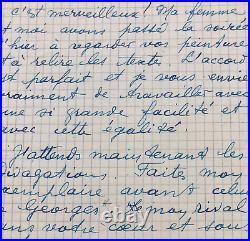 C'est merveilleux! Ma femme
et moi avons passé la soirée
hier à regarder vos peintures
à relire les textes L'accord
est parfait et je vous envie
vraiment de travailler avec
une si grande facilité et
avec cette égalité.
J'attends maintenant les
ivagations. Faites moi
exemplaire avant celui
Georges Lemoy rival
votre cœur et sou